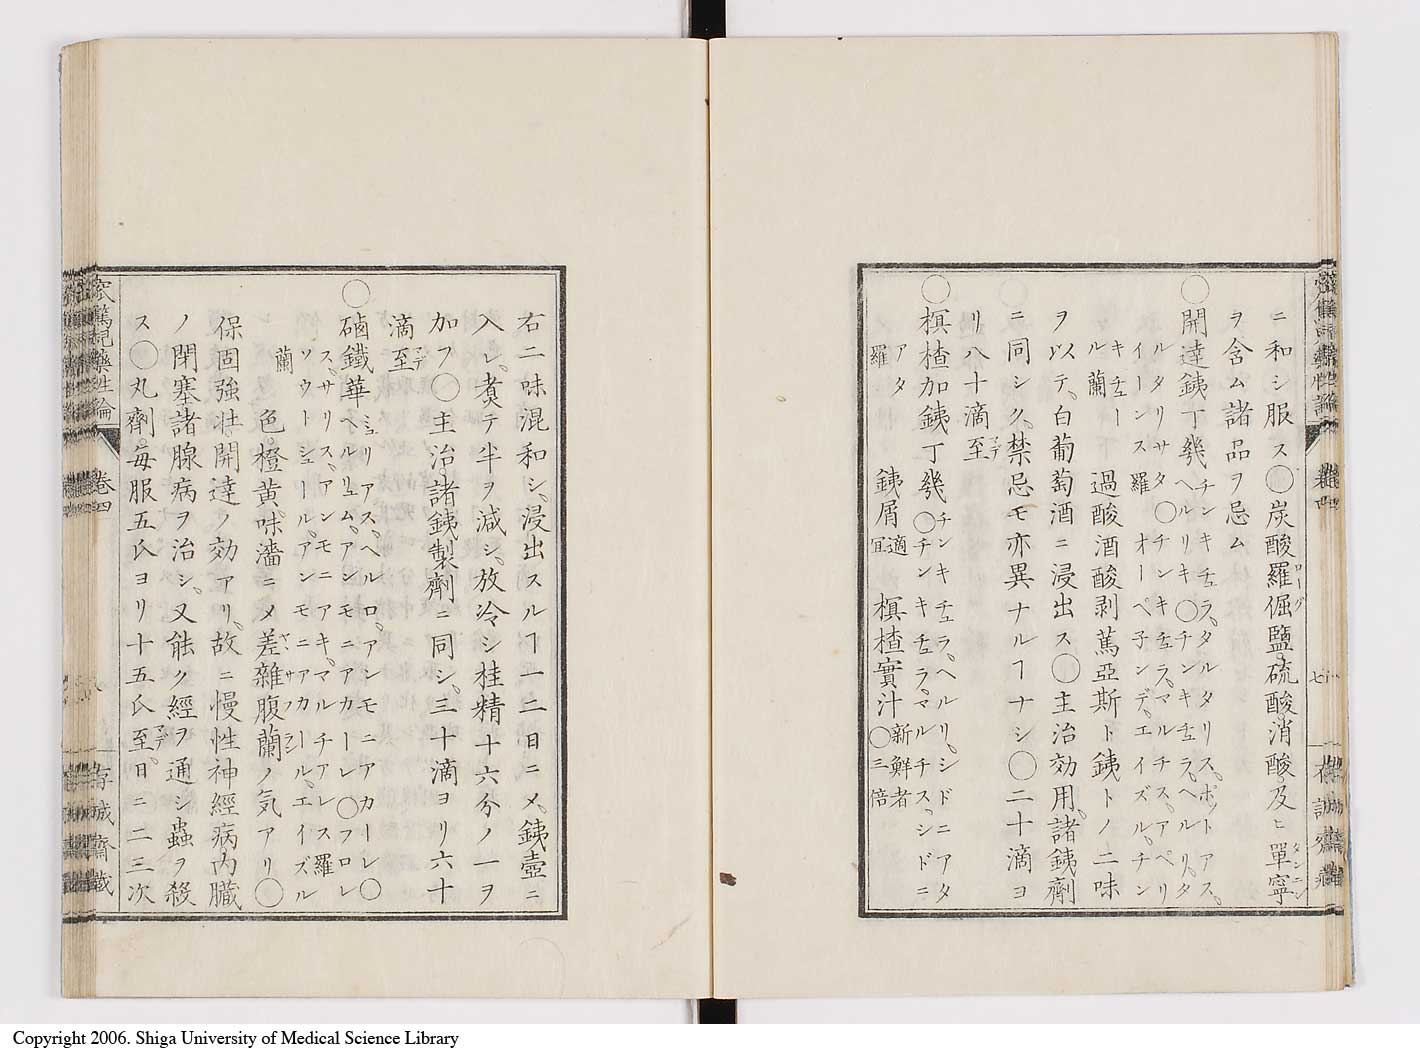 ニ和シ服ス〇炭酸羅倔鹽、硫酸、消酸、及ヒ單寧
ローグ
タンニン
ヲ含ム諸品ヲ忌ム
〇開達銕丁幾
チンキチュラ、タルタリス、ポットアス、
ルタリサタ〇チンキチュラ、マルチス、アペリ
ヘルリキ〇チンキチュラ、ヘルリ、タ
イーンス羅 オーペ子ンデ、エイズル、チン
キチュー
ル蘭 過酸酒酸剥篤亞斯ト銕トノ二味
ヲ以テ、白葡萄酒ニ浸出ス〇主治効用、諸銕劑
ニ同シク、禁忌モ亦異ナルヿナシ〇二十滴ヨ
リ八十滴至
マデ
〇榠樝加銕丁幾
チンキチュラ、ヘルリ、シドニアタ
〇チンキチュラ、マルチス、シドニ
アタ
羅 銕屑 適宜 榠樝實汁 新鮮者〇三倍
右二味混和シ、浸出スルヿ一二日ニメ、銕壺ニ
入レ、煮テ半ヲ減シ、放冷シ桂精十六分ノ一ヲ
加フ〇主治、諸銕製劑ニ同シ、三十滴ヨリ六十
滴至
マデ
〇磠鐵華
ミュリアス、ヘルロ、アンモニアカーレ〇
ヘルリュム、アンモニアカーレ〇フロレ
ス、サリス、アンモニアキ、マルチアレス羅
ソウトジュール、アンモニアカール、エイズル
蘭 色橙黄、味濇ニメ差雜腹蘭ノ気アリ〇
サフラン
保固強壮、開達ノ効アリ、故ニ慢性神經病、内臓
ノ閉塞諸腺病ヲ治シ、又能ク經ヲ通シ蟲ヲ殺
ス〇丸劑、毎服五氏ヨリ十五氏至、日ニ二三次
マデ
藥性論
卷四
存誠齋藏
Copyright 2006. Shiga University of Medical Science Library